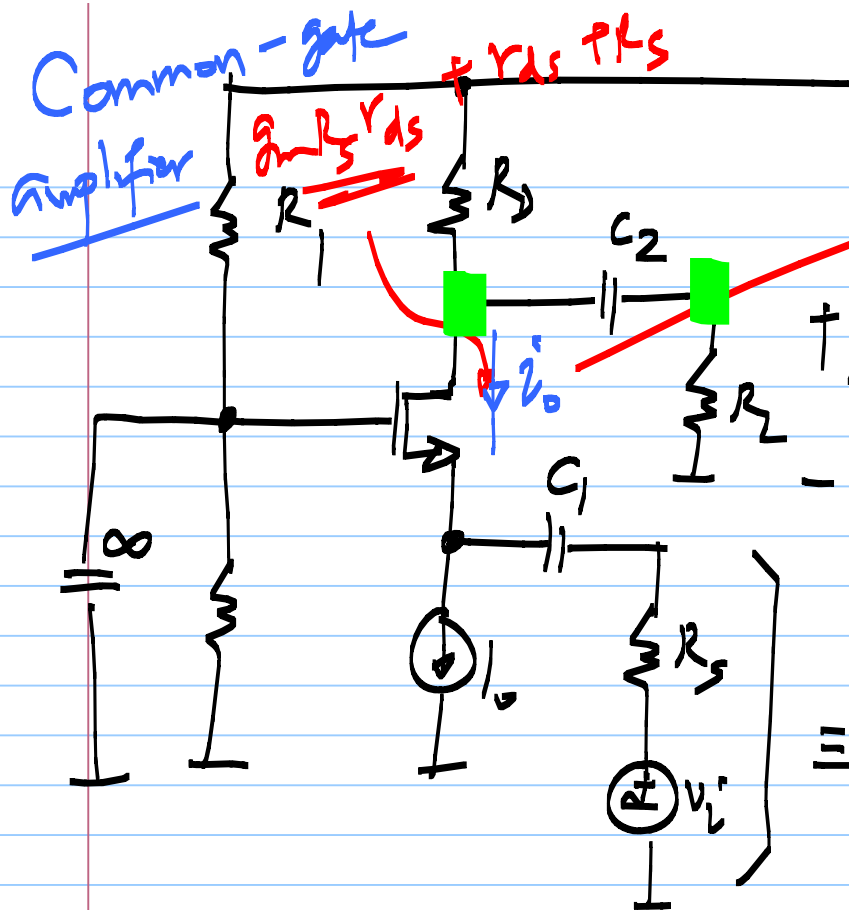 Common-gate
amplifier
+ rds + Rs
gm Rs rds
R1
RD
C2
+
i0
RL
-
C1
∞
I0
Rs
vi
≡